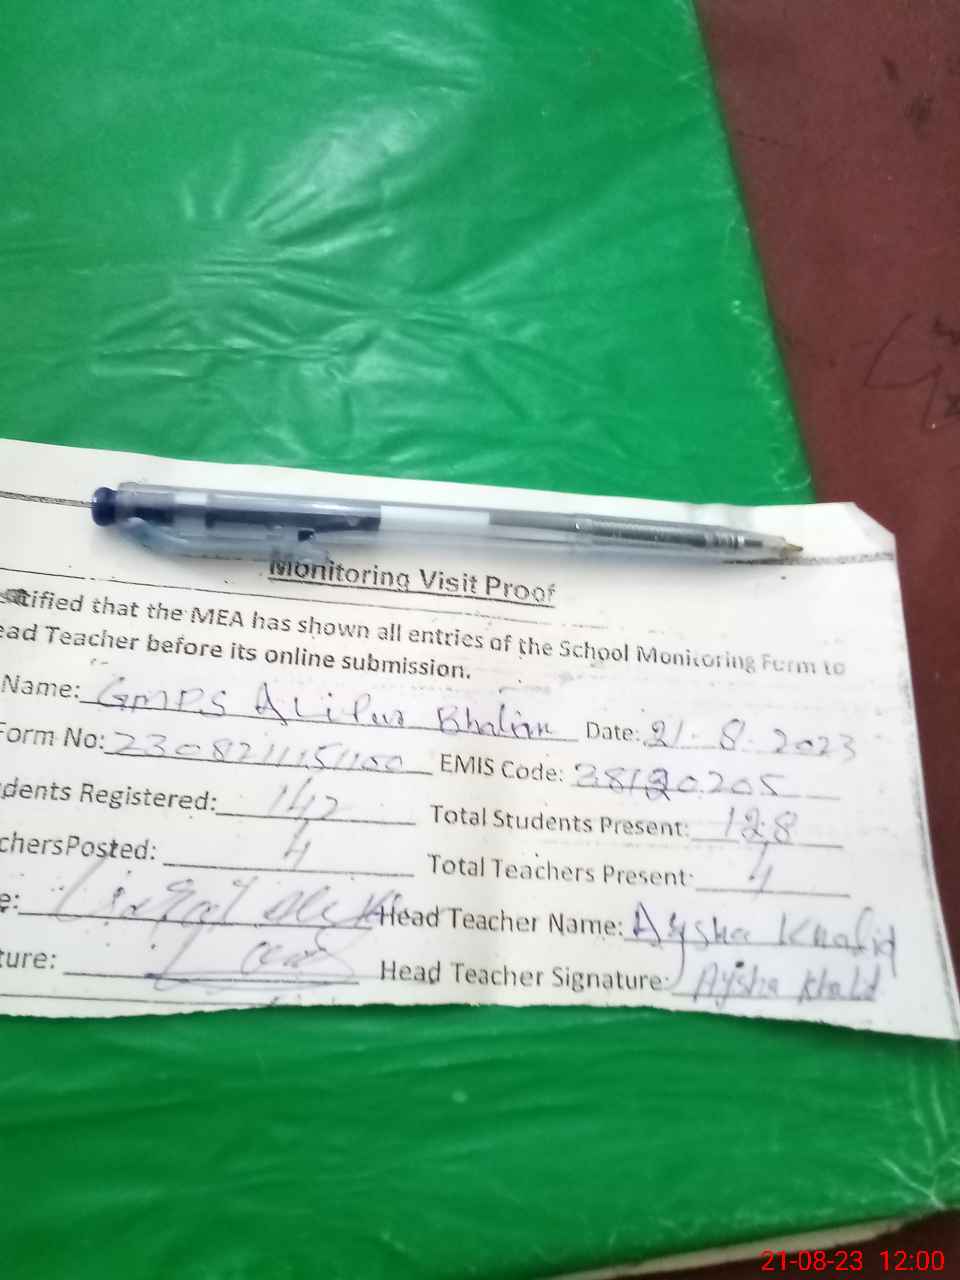 Monitoring Visit Proof
tified that the MEA has shown all entries of the School Monitoring Form to
ead Teacher before its online submission.
Name: GMPS Alipur Bhalian Date: 21-8-2023
Form No: EMIS Code: 38120205
dents Registered: 142 Total Students Present: 128
chersPosted: 4 Total Teachers Present: 4
e: Head Teacher Name: Aysha Khalid
ture: Head Teacher Signature: Aysha Khalid
21-08-23 12:00